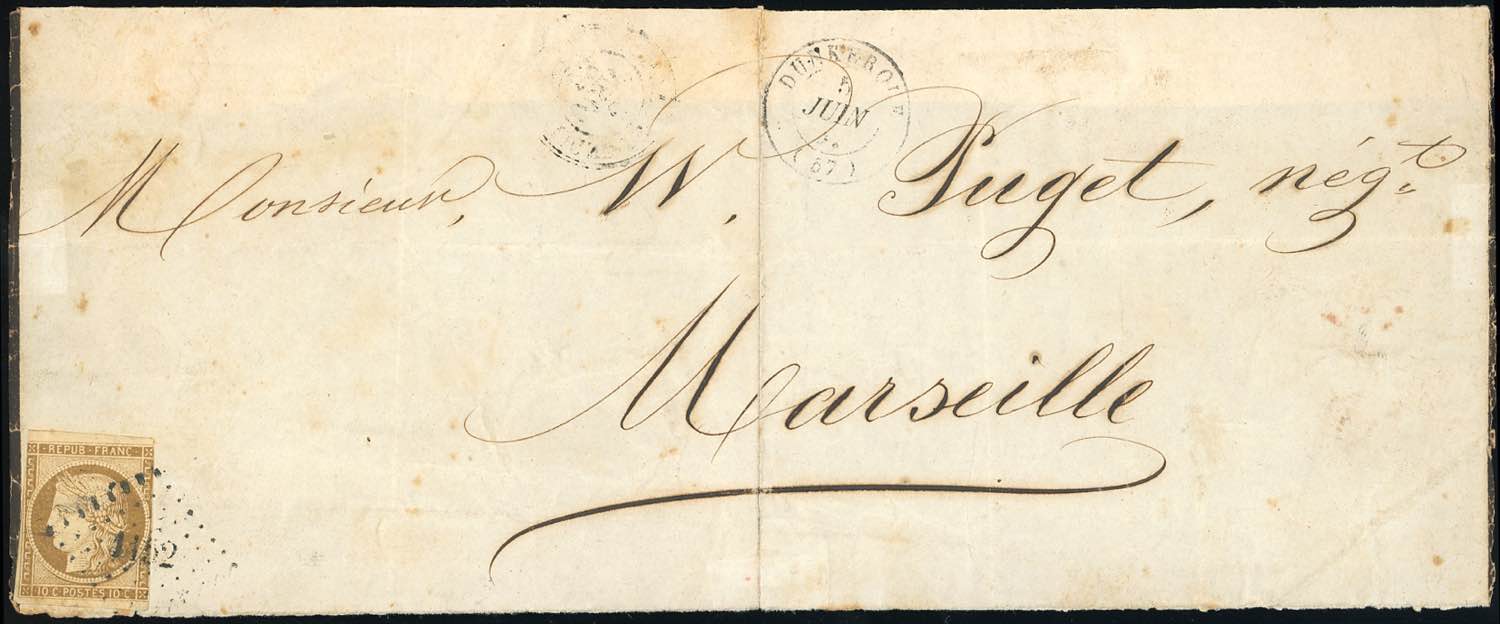 DUNKERQUE
JUIN
(57)
Monsieur, W. Puget, négt.
Marseille
REPUB FRANC
10 C POSTES 10 C